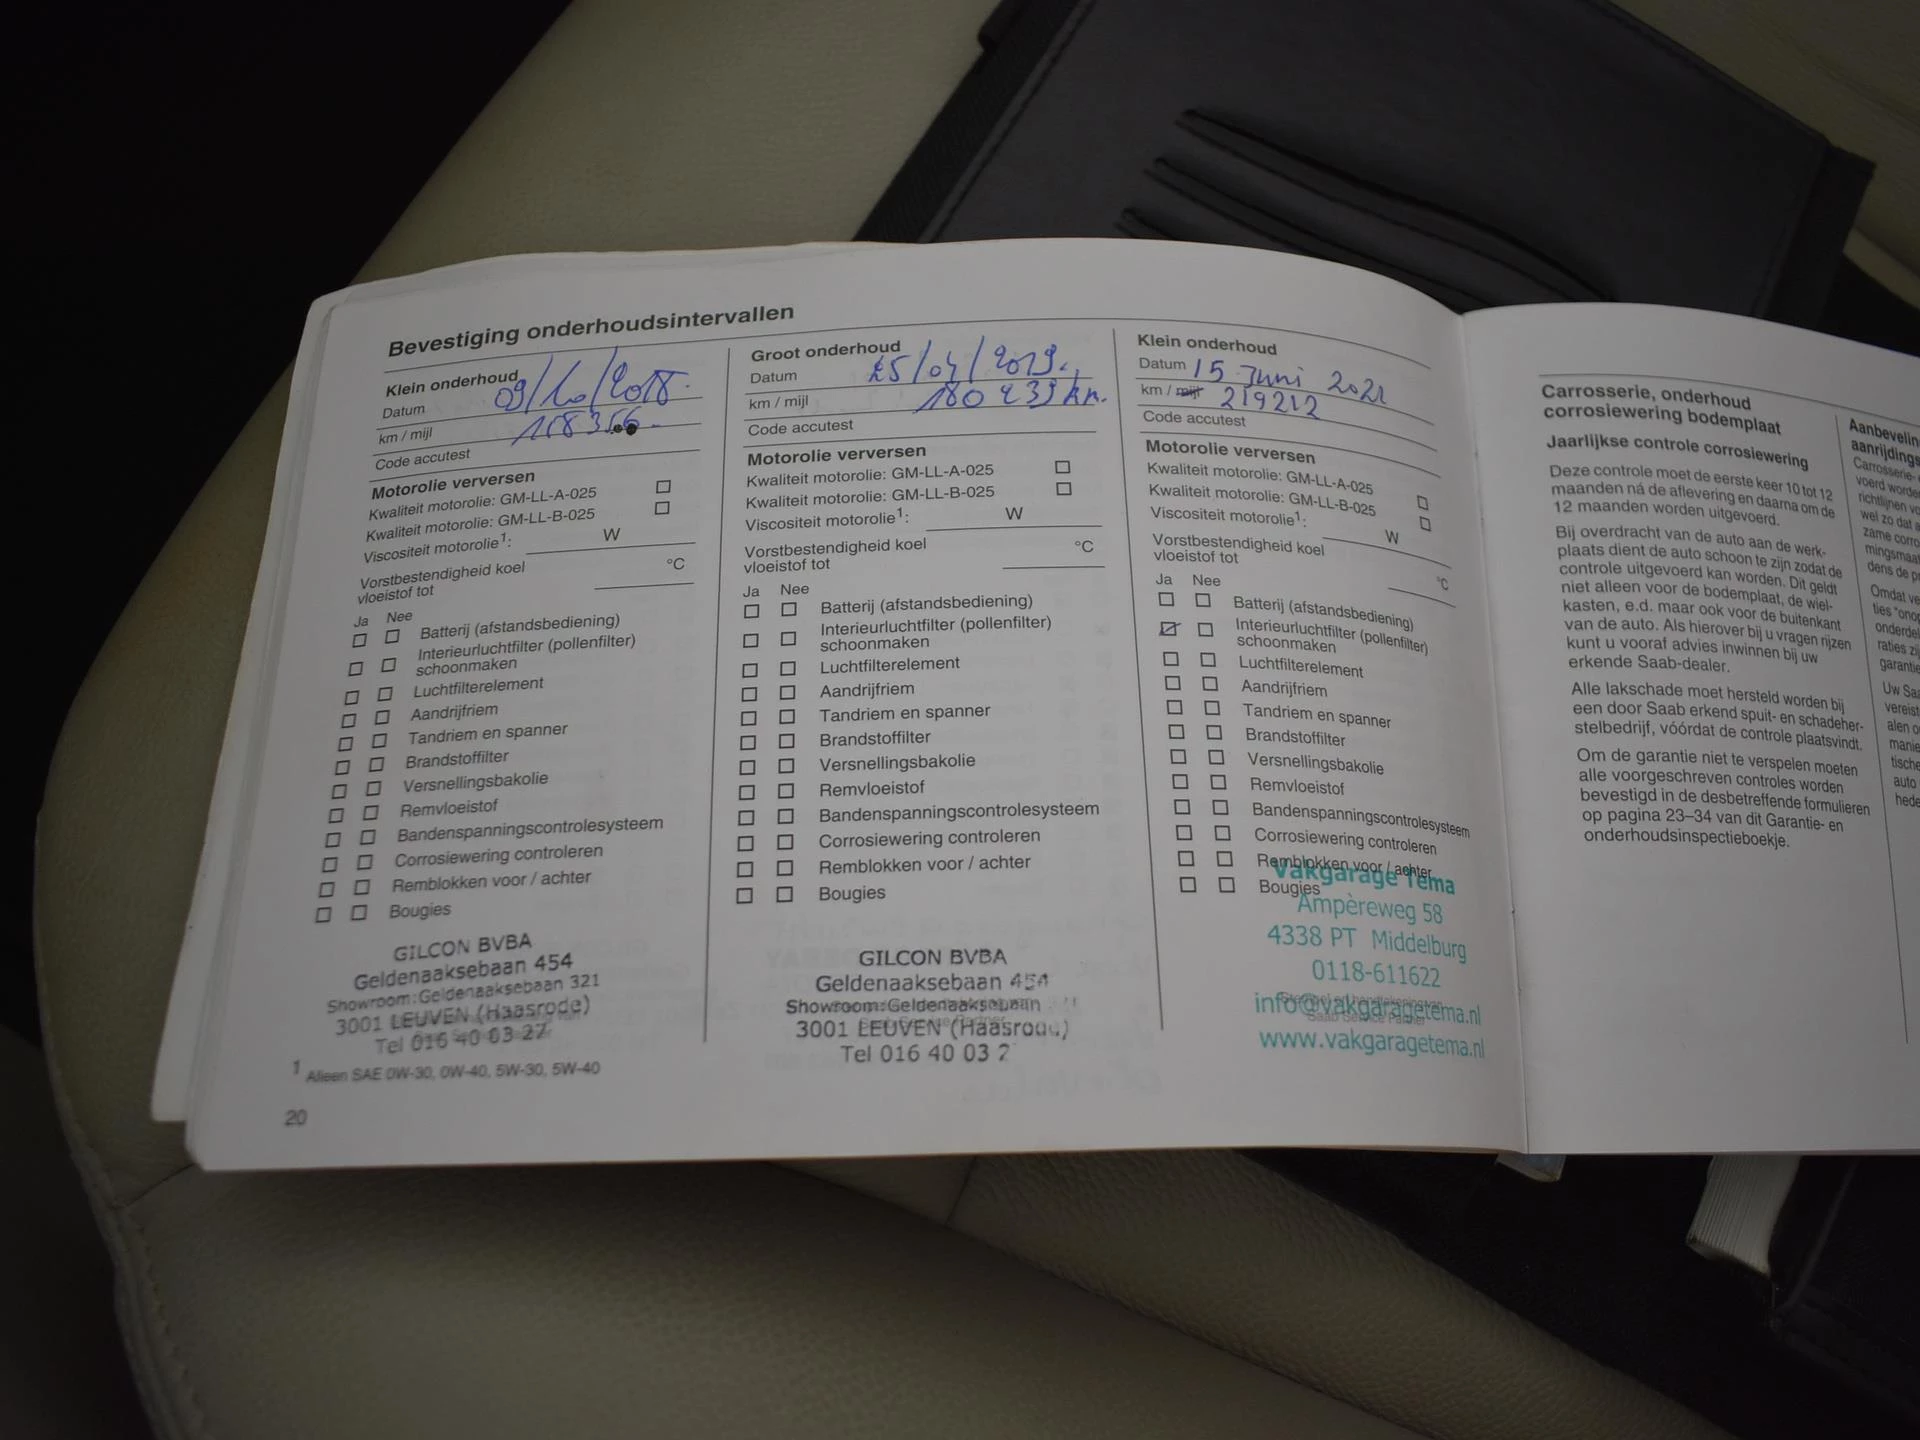 Bevestiging onderhoudsintervallen
Klein onderhoud
Datum 09/10/2018.
km / mijl
Code accutest
Motorolie verversen
Kwaliteit motorolie: GM-LL-A-025
Kwaliteit motorolie: GM-LL-B-025
Viscositeit motorolie1: W
Vorstbestendigheid koel
vloeistof tot °C
Ja Nee
Batterij (afstandsbediening)
Interieurluchtfilter (pollenfilter)
schoonmaken
Luchtfilterelement
Aandrijfriem
Tandriem en spanner
Brandstoffilter
Versnellingsbakolie
Remvloeistof
Bandenspanningscontrolesysteem
Corrosiewering controleren
Remblokken voor / achter
Bougies
GILCON BVBA
Geldenaaksebaan 454
Showroom: Geldenaaksebaan 321
3001 LEUVEN (Haasrode)
Tel 016 40 03 27
1 Alleen SAE 0W-30, 0W-40, 5W-30, 5W-40
20
Groot onderhoud
Datum 25/04/2019.
km / mijl 180 239 km.
Code accutest
Motorolie verversen
Kwaliteit motorolie: GM-LL-A-025
Kwaliteit motorolie: GM-LL-B-025
Viscositeit motorolie1: W
Vorstbestendigheid koel
vloeistof tot °C
Ja Nee
Batterij (afstandsbediening)
Interieurluchtfilter (pollenfilter)
schoonmaken
Luchtfilterelement
Aandrijfriem
Tandriem en spanner
Brandstoffilter
Versnellingsbakolie
Remvloeistof
Bandenspanningscontrolesysteem
Corrosiewering controleren
Remblokken voor / achter
Bougies
GILCON BVBA
Geldenaaksebaan 454
Showroom: Geldenaaksebaan
3001 LEUVEN (Haasrode)
Tel 016 40 03 2
Klein onderhoud
Datum 15 Juni 2021
km / mijl 219212
Code accutest
Motorolie verversen
Kwaliteit motorolie: GM-LL-A-025
Kwaliteit motorolie: GM-LL-B-025
Viscositeit motorolie1: W
Vorstbestendigheid koel
vloeistof tot °C
Ja Nee
Batterij (afstandsbediening)
Interieurluchtfilter (pollenfilter)
schoonmaken
Luchtfilterelement
Aandrijfriem
Tandriem en spanner
Brandstoffilter
Versnellingsbakolie
Remvloeistof
Bandenspanningscontrolesysteem
Corrosiewering controleren
Remblokken voor / achter
Bougies
Vakgarage Tema
Ampèreweg 58
4338 PT Middelburg
0118-611622
Stempel en handtekening van
info@vakgaragetema.nl
Saab Service Partner
www.vakgaragetema.nl
Carrosserie, onderhoud
corrosiewering bodemplaat
Jaarlijkse controle corrosiewering
Deze controle moet de eerste keer 10 tot 12
maanden ná de aflevering en daarna om de
12 maanden worden uitgevoerd.
Bij overdracht van de auto aan de werk-
plaats dient de auto schoon te zijn zodat de
controle uitgevoerd kan worden. Dit geldt
niet alleen voor de bodemplaat, de wiel-
kasten, e.d. maar ook voor de buitenkant
van de auto. Als hierover bij u vragen rijzen
kunt u vooraf advies inwinnen bij uw
erkende Saab-dealer.
Alle lakschade moet hersteld worden bij
een door Saab erkend spuit- en schadeher-
stelbedrijf, vóórdat de controle plaatsvindt.
Om de garantie niet te verspelen moeten
alle voorgeschreven controles worden
bevestigd in de desbetreffende formulieren
op pagina 23–34 van dit Garantie- en
onderhoudsinspectieboekje.
Aanbevelin
aanrijdings
Carrosserie-
voerd worde
richtlijnen vo
wel zo dat a
zame corro
mingsmaat
dens de p
Omdat ve
ties "onop
onderdel
raties zij
garantie
Uw Saa
vereist
alen o
manie
tische
auto
hede